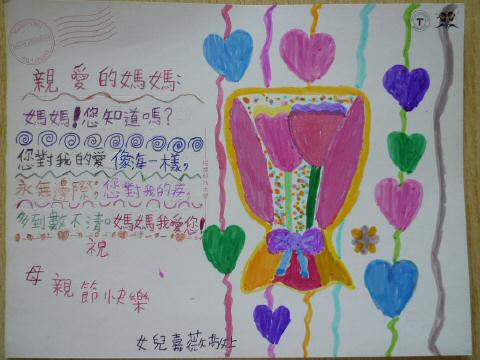 親愛的媽媽:
媽媽!您知道嗎?
您對我的愛像海一樣,
永無邊際;您對我的疼,
多到數不清。媽媽我愛您!
祝
母親節快樂
女兒嘉薇敬上
T